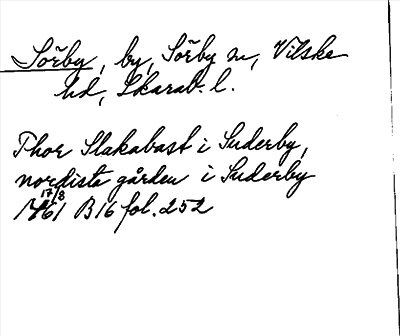 Sörby, by, Sörby sn, Vilske
hd, Skarab. l.
Thor Slakabast i Suderby,
nordista gården i Suderby
17/8
1461 B16 fol. 252